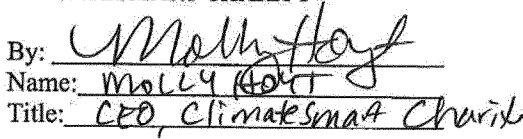 By: Molly Hoyt
Name: MOLLY HOYT
Title: CEO, Climatesmart